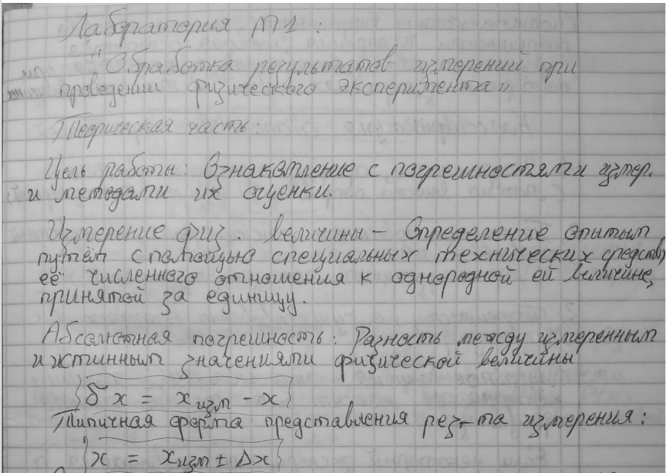 Лаборатория №1:
"Обработка результатов измерений при
проведении физического эксперимента"
Теорическая часть:
Цель работы: Ознакомление с погрешностями измер.
и методами их оценки.
Измерение физ. величины – Определение опытым
путём с помощью специальных технических средств,
её численного отношения к однородной ей величине,
принятой за единицу.
Абсолютная погрешность: Разность между измеренным
и истинным значениями физической величины
δx = xизм - x
Типичная форма представления рез-та измерения:
x = xизм ± Δx